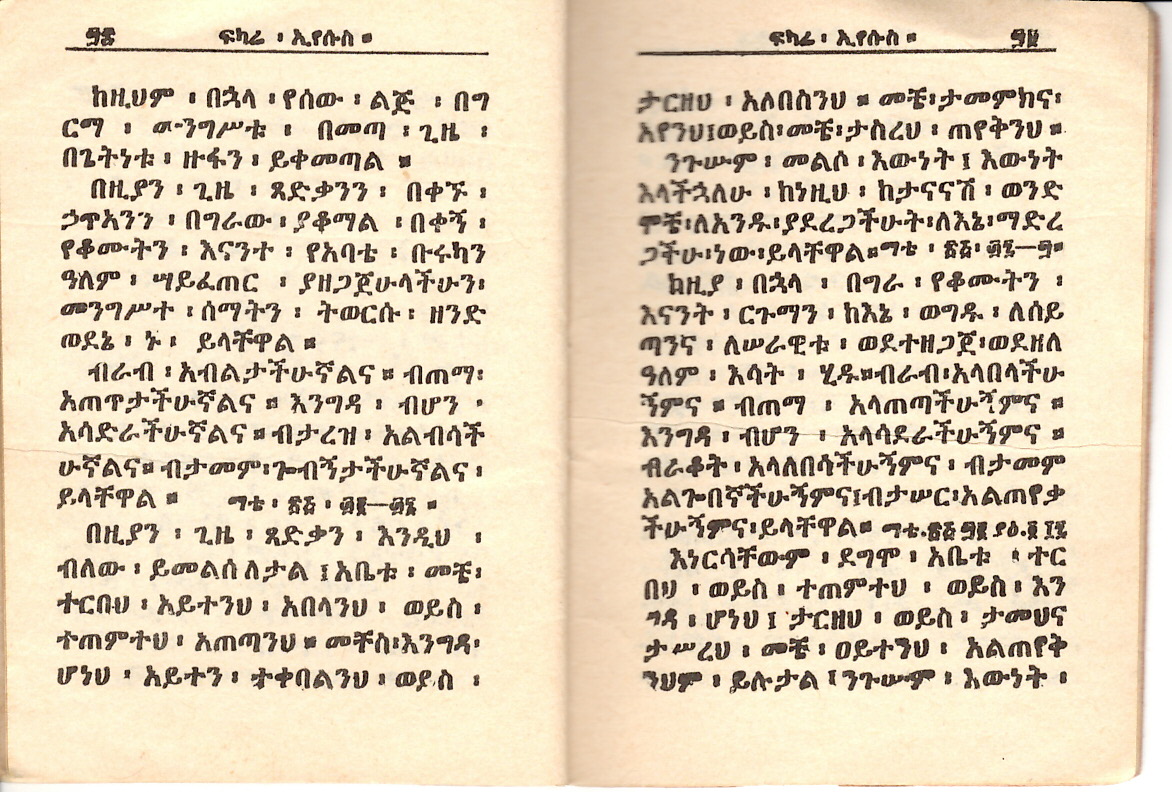 ፵፭ ፍካሬ ፡ ኢየሱስ ።
ከዚህም ፡ በኋላ ፡ የሰው ፡ ልጅ ፡ በግ
ርማ ፡ መንግሥቱ ፡ በመጣ ፡ ጊዜ ፡
በጌትነቱ ፡ ዙፋን ፡ ይቀመጣል ።
በዚያን ፡ ጊዜ ፡ ጻድቃንን ፡ በቀኙ ፡
ኃጥአንን ፡ በግራው ፡ ያቆማል ፡ በቀኝ ፡
የቆሙትን ፡ እናንተ ፡ የአባቴ ፡ ቡሩካን
ዓለም ፡ ሣይፈጠር ፡ ያዘጋጀሁላችሁን፡
መንግሥተ ፡ ሰማትን ፡ ትወርሱ ፡ ዘንድ
ወደኔ ፡ ኑ ፡ ይላቸዋል ።
ብራብ ፡ አብልታችሁኛልና ። ብጠማ፡
አጠጥታችሁኛልና ። እንግዳ ፡ ብሆን ፡
አሳድራችሁኛልና ። ብታረዝ ፡ አልብሳች
ሁኛልና። ብታመም፡ጐብኝታችሁኛልና ፡
ይላቸዋል ። ማቴ ፡ ፳፭ ፡
በዚያን ፡ ጊዜ ፡ ጻድቃን ፡ እንዲህ ፡
ብለው ፡ ይመልሰለታል ፤ አቤቱ ፡ መቼ፡
ተርበህ ፡ አይተንህ ፡ አበላንህ ፡ ወይስ ፡
ተጠምተህ ፡ አጠጣንህ ። መቸስ፡እንግዳ፡
ሆነህ ፡ አይተን ፡ ተቀበልንህ ፡ ወይስ ፡
ፍካሬ ፡ ኢየሱስ ።
ታርዘህ ፡ አለበስንህ ። መቼ፡ታመምክና፡
አየንህ፤ወይስ፡መቼ፡ታስረህ ፡ ጠየቅንህ ።
ንጉሡም ፡ መልሶ ፡ እውነት ፤ እውነት
እላችኋለሁ ፡ ከነዚህ ፡ ከታናናሽ ፡ ወንድ
ሞቼ፡ለአንዱ፡ያደረጋችሁት፡ለእኔ፡ማድረ
ጋችሁ፡ነው፡ይላቸዋል።ማቴ ፡ ፳፭፡
ከዚያ ፡ በኋላ ፡ በግራ ፡ የቆሙትን ፡
እናንት ፡ ርጉማን ፡ ከእኔ ፡ ወግዱ ፡ ለሰይ
ጣንና ፡ ለሠራዊቱ ፡ ወደተዘጋጀ፡ወደዘለ
ዓለም ፡ እሳት ፡ ሂዱ።ብራብ፡አላበላችሁ
ኝምና ። ብጠማ ፡ አላጠጣችሁኝምና ።
እንግዳ ፡ ብሆን ፡ አላሳደራችሁኝምና ።
ብራቆት ፡ አላለበሳችሁኝምና ፡ ብታመም
አልጐበኛችሁኝምና፤ብታሠር፡አልጠየቃ
ችሁኝምና፡ይላቸዋል። ማቴ.፳፭
እነርሳቸውም ፡ ደግሞ ፡ አቤቱ ፡ ተር
በህ ፡ ወይስ ፡ ተጠምተህ ፡ ወይስ ፡ እን
ግዳ ፡ ሆነህ ፤ ታርዘህ ፡ ወይስ ፡ ታመህና
ታሥረህ ፡ መቼ ፡ ዐይተንህ ፡ አልጠየቅ
ንህም ፡ ይሉታል ፤ ንጉሡም ፡ እውነት ፡